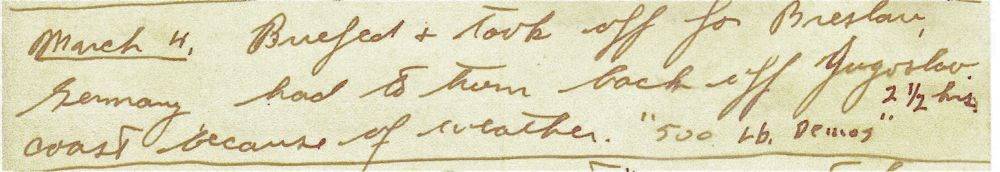 March 4, Briefed + took off for Breslau,
Germany had to turn back off Yugoslav.
2 1/2 hrs.
coast because of weather. "500 Lb. Demos"